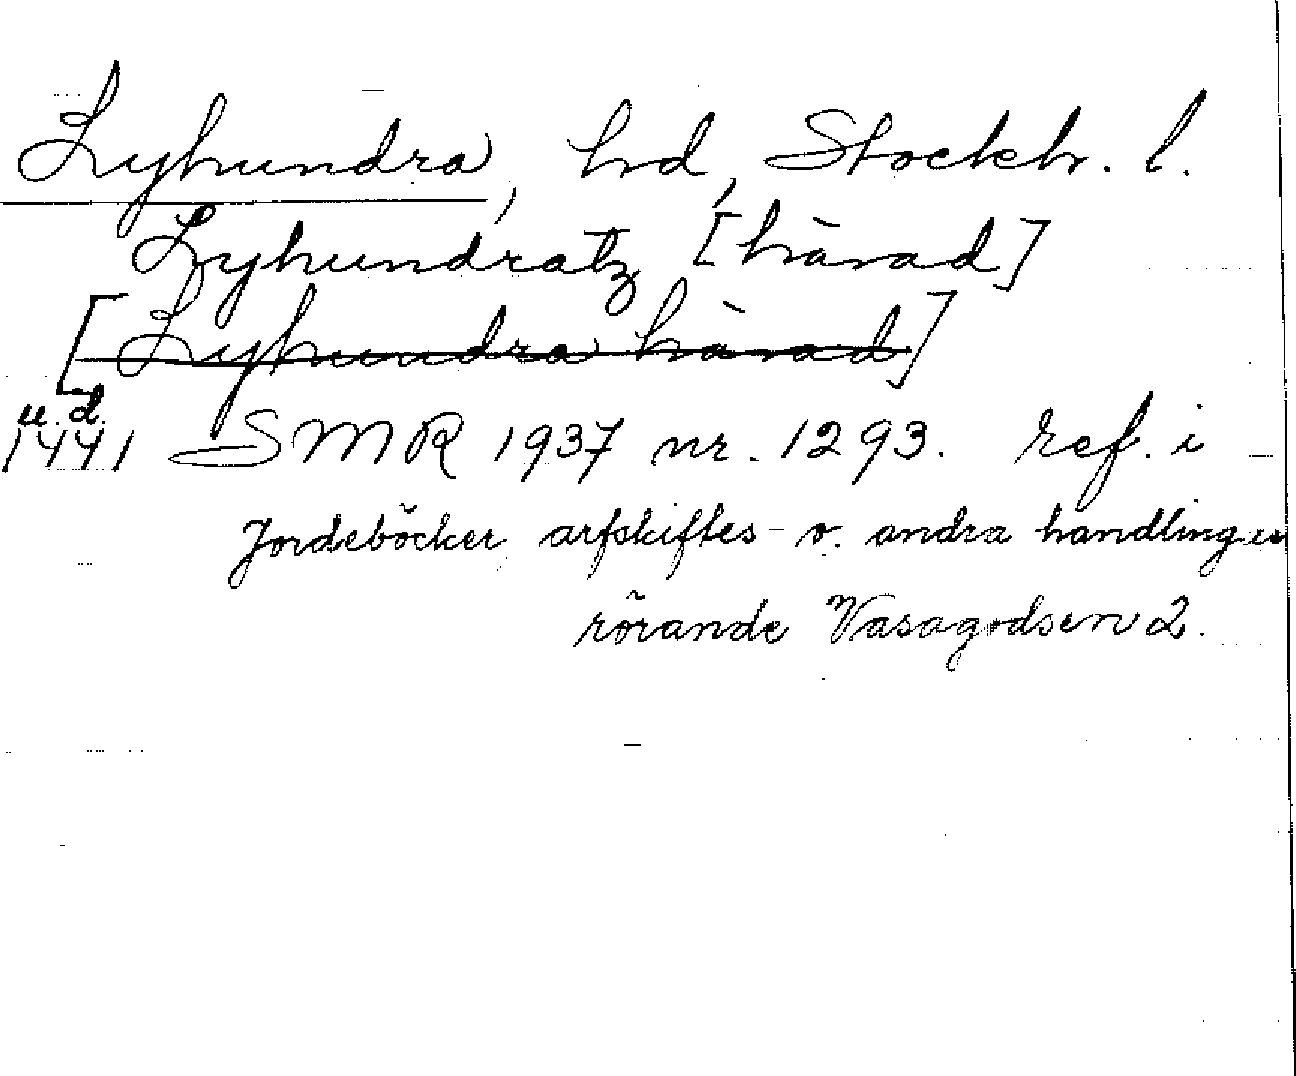 Lyhundra, hd, Stockh. l.
Lyhundratz [härad]
[Lyhundra härad]
u. d.
1441 SMR 1937 nr. 1293. ref. i
Jordeböcker arfskiftes- o. andra handlingar
rörande Vasagodsen 2.